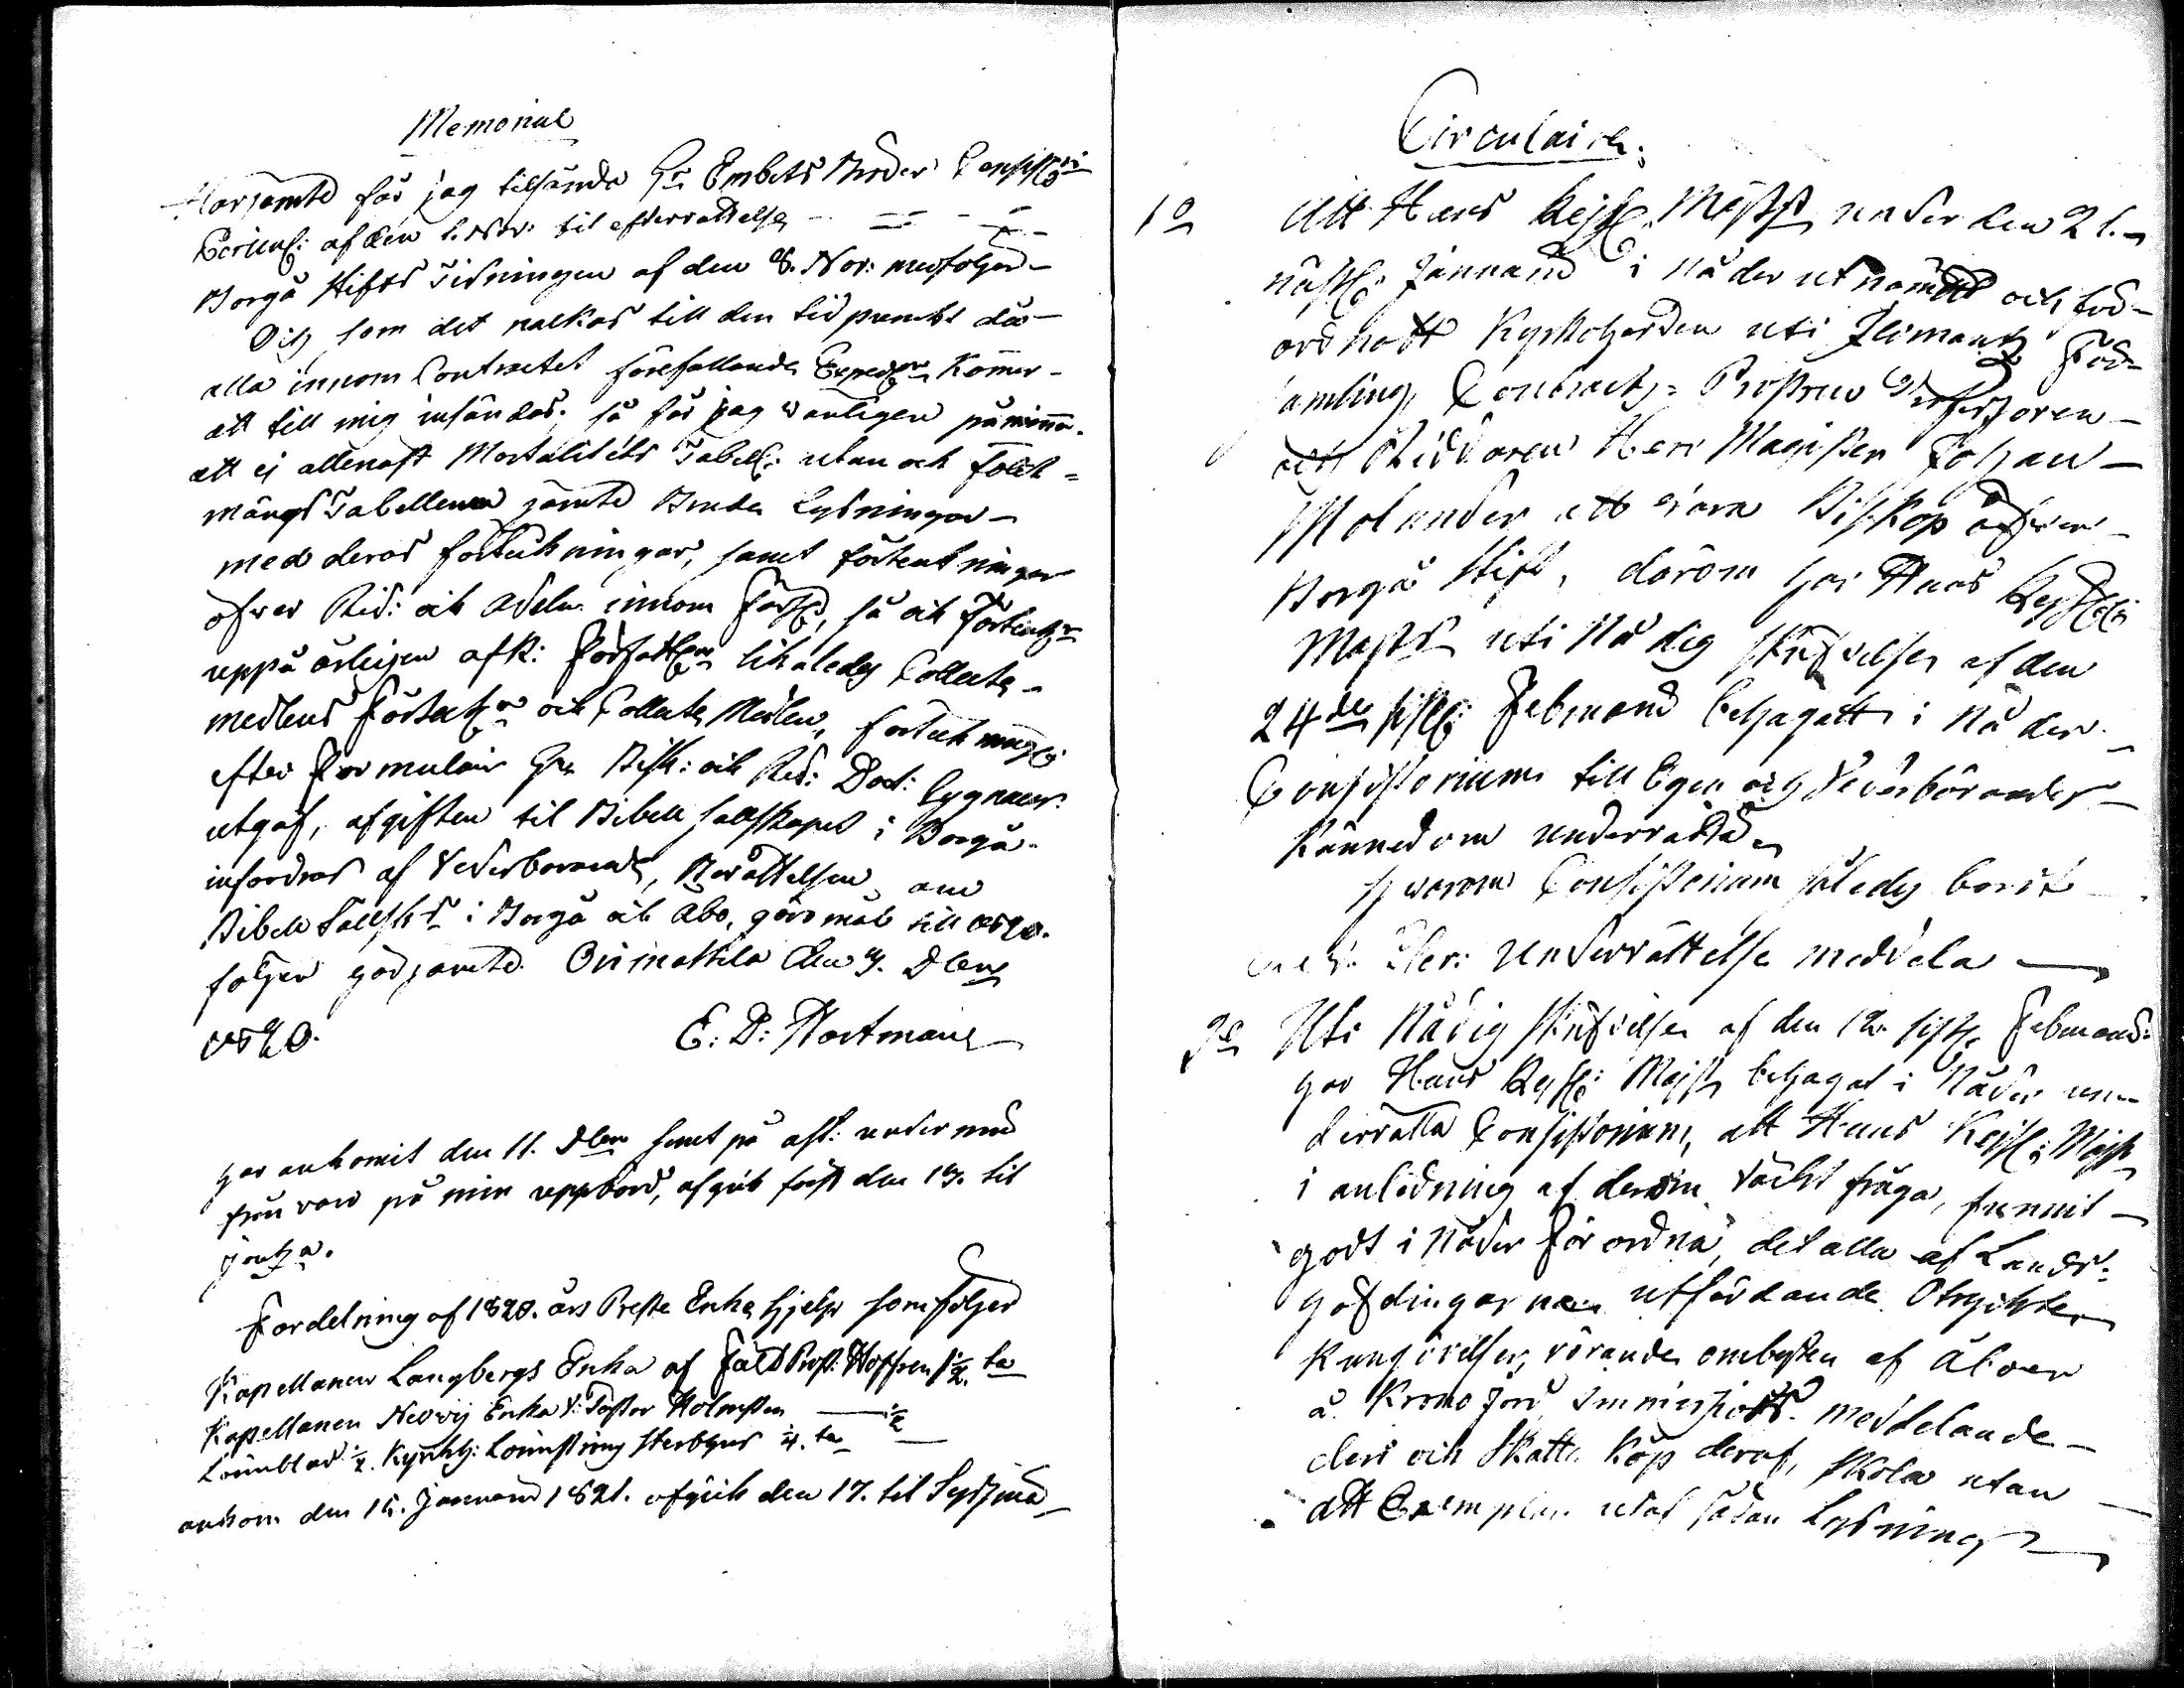 Memorial
Härjemte får jag tillsända Hrr Embets Bröder Consistorii
Circul: af den 1. Nov: til efterrättelse
Borgå Stifts Tidningen af den 8. Nov: medfölgen
Och som det nalkas till den tid punckt då
alla innom Contractet förefallande Expedr kommer
att till mig insändas, så får jag vänligen påminna
att ej allenast Mortalitets Tabell: utan och folck=
mängs Tabellerna jämte Lysningar
med deras förtekningar, samt förtekningar
öfver Rid: och Adeln innom Förs, så ock förtekn
uppå årligen afl: likaledes Collecte
medlens Förtekn och Collecte Medlen, förtekning
efter Formulair Hr Bisk: och Rid: Doct: Cygnaeus
utgaf, afgiften til Bibell sällskapet i Borgå
infordras af Vederbörande, Berättelsen om
Bibell Sällsk i Borgå och Åbo, till 1820.
följer härjemte. Orimattila den 9. Dbris
1820. E. D: Wortman
har ankomit den 11. Dbr samt på aft: under min
från varo på min uppbörd, afgick först den 13. til
Fördelning af 1820. års Preste Enke hjelp som följer
Kapellanen Langbergs Enka af Fält Prost: 1/2 ta
Kapellanen Enka Pastor Holmsten 1/2
1/2. Kyrkh: Sterbhus 1/4. ta
ankom den 15. Januarii 1821. afgick den 17. til Sysmä
Circulaire.
1o Att Hans Kejs: Majst under den 21.
näst: Januarii i Nåder utnämdt och för=
ordnatt Kyrkoherden uti Ilomants För=
samling, Contracts= Prosten Professoren
och Riddaren Herr Magister Johan
Molander att vara Biskop öfver
Borgå Stift, därom har Hans Kejsl:
Majst uti Nådig skrifvelse af den
24de sistl: Februarii behagatt i Nåder
Consistorium till Egen och Vederbörandes
kännedom underrätta
hvarom Consistorium således bordt
Underrättelse meddela
2o Uti Nådig skrifvelse af den 12. sistl: Februarii
har Hans Kejsl: Majst behagat i Nåder un=
derrätta Consistorium, att Hans Kejsl: Majst
i anledning af derom väckt fråga, funnit
godt i Nåder förordna, det alla af Lands=
höfdingarne utfärdande Otryckte
kungörelser, rörande ombyten af åboer
å Krono jord Immissions meddelande
deri och Skatte köp deraf, skola utan
att Exemplar utaf sådan Lysning